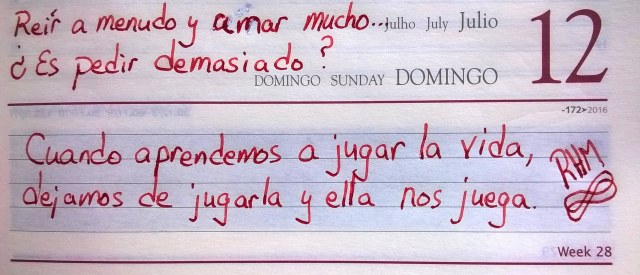 Reír a menudo y amar mucho... Julho July Julio
¿Es pedir demasiado?
DOMINGO SUNDAY DOMINGO 12
-172>2016
Cuando aprendemos a jugar la vida,
dejamos de jugarla y ella nos juega.
RHM
Week 28